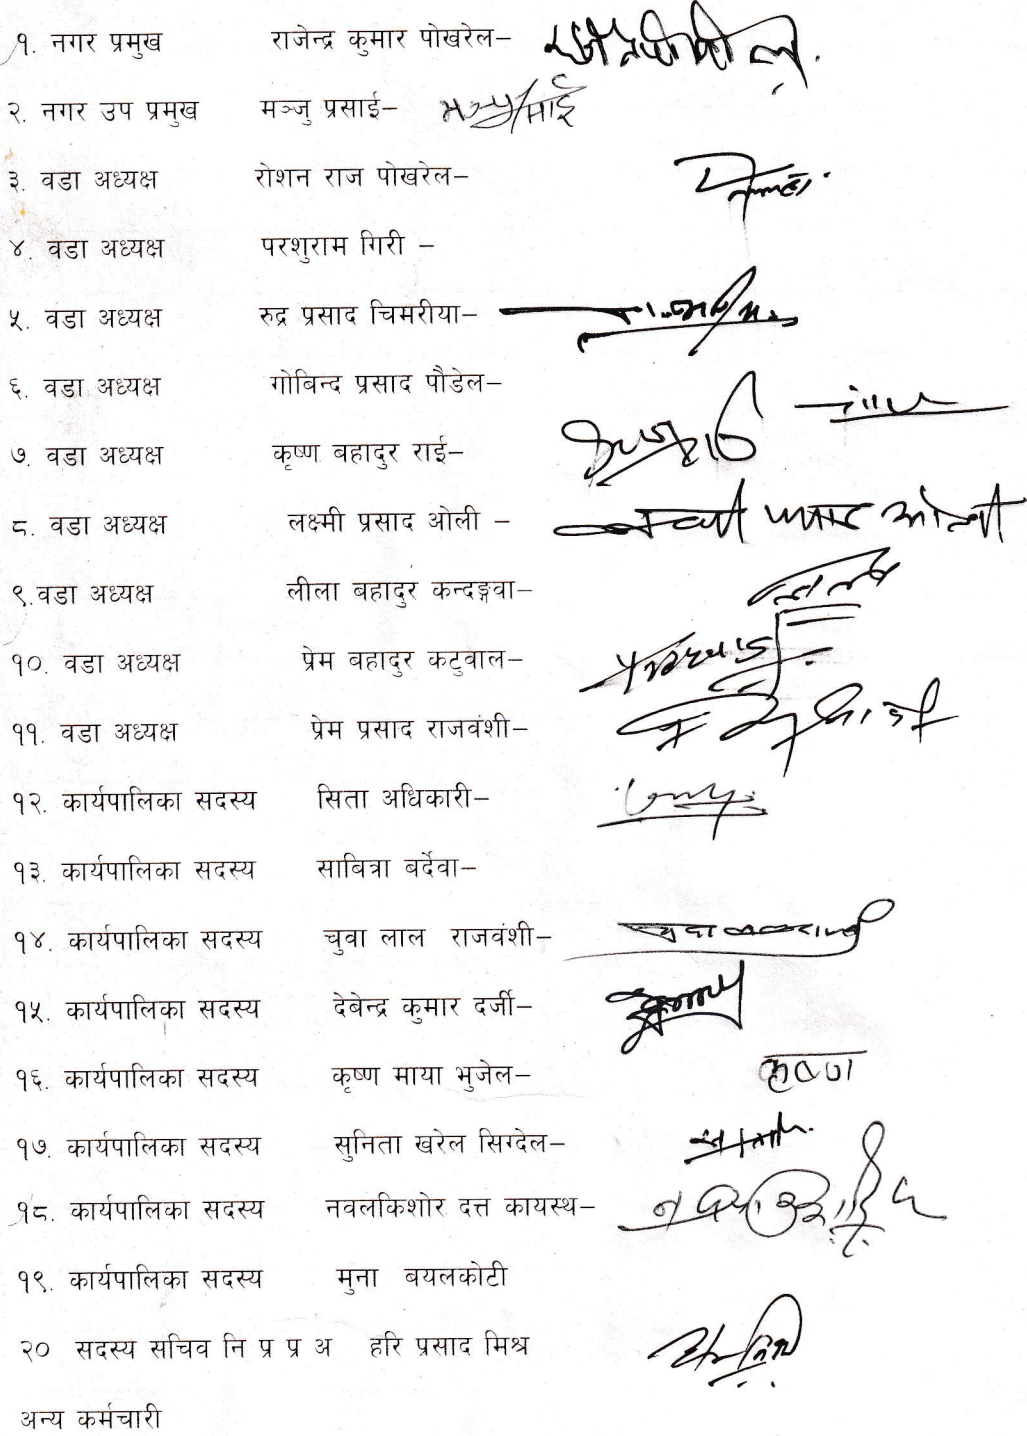 १. नगर प्रमुख राजेन्द्र कुमार पोखरेल–
२. नगर उप प्रमुख मञ्जु प्रसाई–
३. वडा अध्यक्ष रोशन राज पोखरेल–
४. वडा अध्यक्ष परशुराम गिरी –
५. वडा अध्यक्ष रुद्र प्रसाद चिमरीया–
६. वडा अध्यक्ष गोबिन्द प्रसाद पौडेल–
७. वडा अध्यक्ष कृष्ण बहादुर राई–
८. वडा अध्यक्ष लक्ष्मी प्रसाद ओली –
९.वडा अध्यक्ष लीला बहादुर कन्दङ्गवा–
१०. वडा अध्यक्ष प्रेम बहादुर कटुवाल–
११. वडा अध्यक्ष प्रेम प्रसाद राजवंशी–
१२. कार्यपालिका सदस्य सिता अधिकारी–
१३. कार्यपालिका सदस्य साबित्रा बर्देवा–
१४. कार्यपालिका सदस्य चुवा लाल राजवंशी–
१५. कार्यपालिका सदस्य देबेन्द्र कुमार दर्जी–
१६. कार्यपालिका सदस्य कृष्ण माया भुजेल– कृष्ण
१७. कार्यपालिका सदस्य सुनिता खरेल सिग्देल–
१८. कार्यपालिका सदस्य नवलकिशोर दत्त कायस्थ–
१९. कार्यपालिका सदस्य मुना बयलकोटी
२० सदस्य सचिव नि प्र प्र अ हरि प्रसाद मिश्र
अन्य कर्मचारी